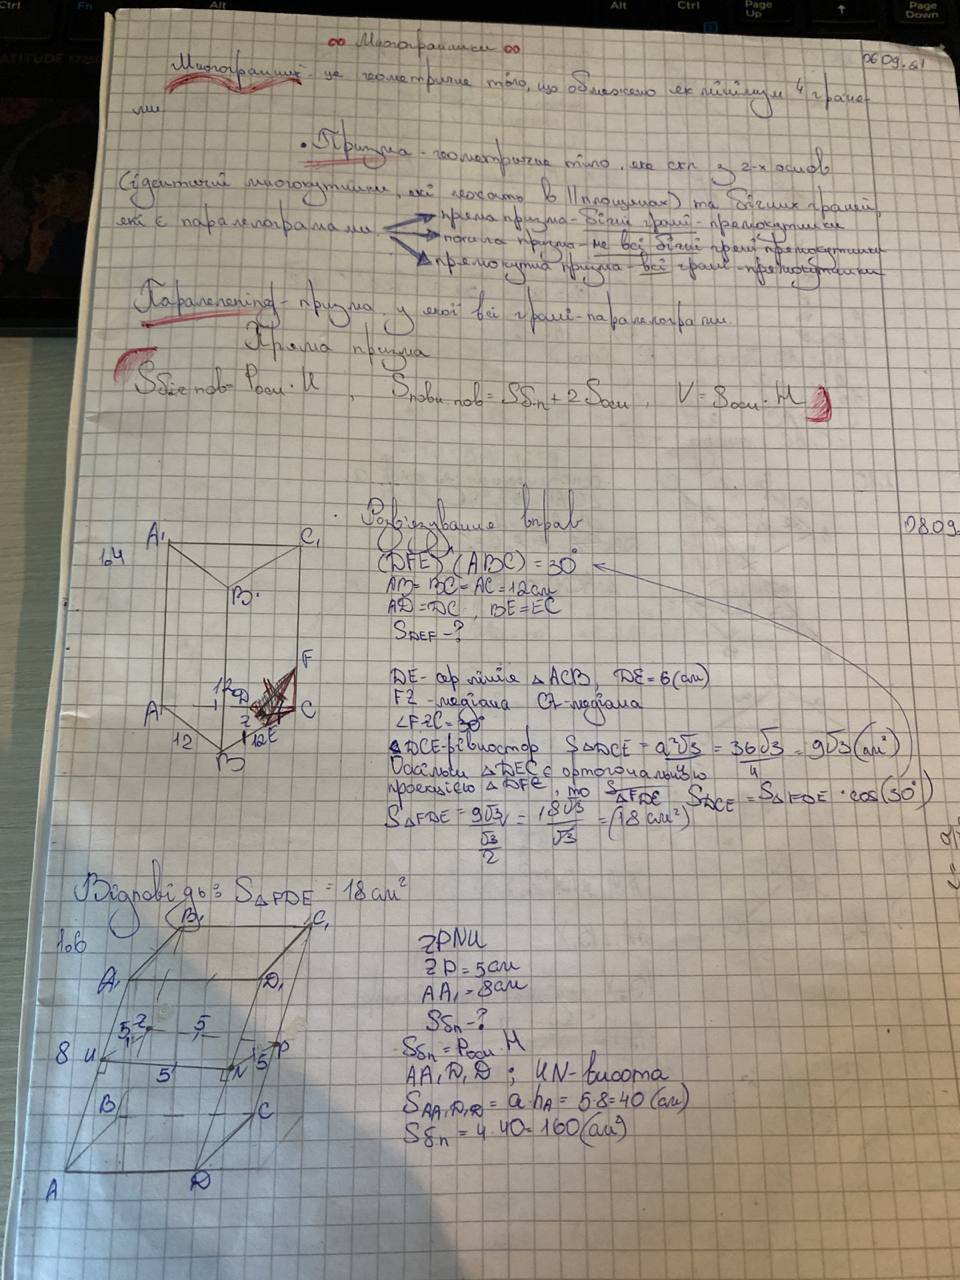 Ctrl
Fn
Alt
Alt
Ctrl
Page Up
↑
Page Down
∞ Многогранники ∞
06.09.21
Многогранник - це геометричне тіло, що обмежено як мінімум 4 граня-
ми
• Призма - геометричне тіло, яке скл. з 2-х основ
(ідентичні многокутники, які лежать в || площинах) та бічних граней,
які є паралелограмами
пряма призма - бічні грані - прямокутники
похила призма - не всі бічні грані прямокутники
прямокутна призма - всі грані - прямокутники
Паралелепіпед - призма, у якої всі грані - паралелограми.
Пряма призма
Sбіч пов = Pосн · H , Sповн пов = Sбп + 2 Sосн , V = Sосн · H
Розвʼязування вправ
08.09.
1.4
A₁
C₁
B₁
F
A
D
C
Z
E
B
12
12
12
(DFE) (ABC) = 30°
AB = BC = AC = 12 см
AD = DC , BE = EC
SDEF - ?
DE - сер лінія △ACB, DE = 6 (см)
FZ - медіана CZ - медіана
∠FZC = 30°
△DCE - рівностор S△DCE = a²√3 = 36√3/4 = 9√3 (см²)
Оскільки △DEC є ортогональною
проекцією △DFE, то S△FDE SDCE = S△FDE · cos(30°)
S△FDE = 9√3/(√3/2) = 18√3/√3 = (18 см²)
Відповідь: S△FDE = 18 см²
1.6
B₁
C₁
A₁
D₁
Z
5
5
8
K
P
5
N
5
B
C
A
D
ZPNK
ZP = 5 см
AA₁ = 8 см
Sбп - ?
Sбп = Pосн · H
AA₁D₁D ; KN - висота
SAA₁D₁D = a · hA = 5·8 = 40 (см)
Sбп = 4·40 = 160 (см²)